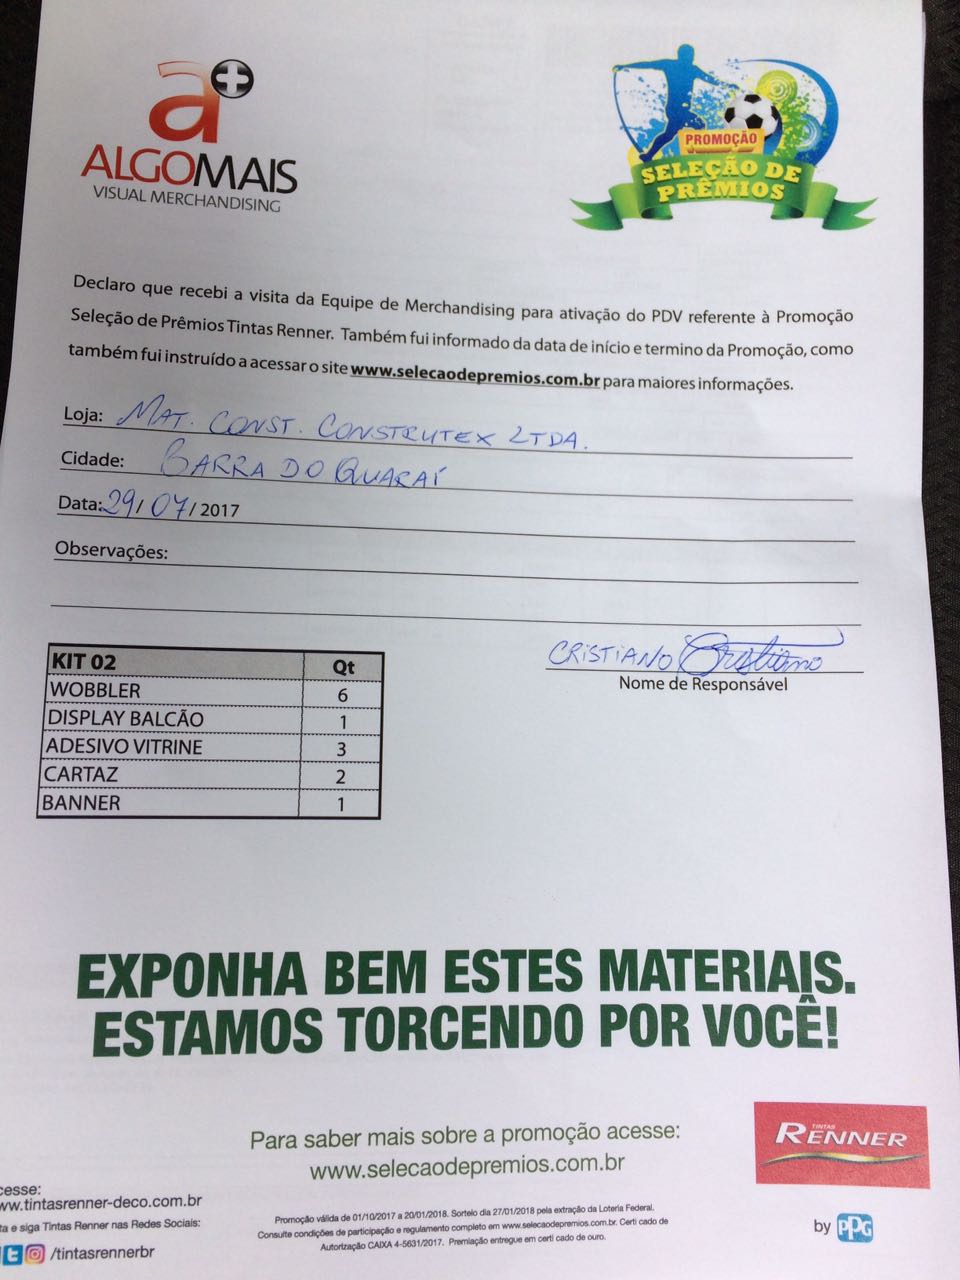 a+
ALGOMAIS
VISUAL MERCHANDISING
PROMOÇÃO
SELEÇÃO DE
PRÊMIOS
Declaro que recebi a visita da Equipe de Merchandising para ativação do PDV referente à Promoção
Seleção de Prêmios Tintas Renner. Também fui informado da data de início e termino da Promoção, como
também fui instruído a acessar o site www.selecaodepremios.com.br para maiores informações.
Loja: MAT. CONST. CONSTRUTEX LTDA.
Cidade: BARRA DO QUARAÍ
Data: 29/07/2017
Observações:
CRISTIANO Cristiano
Nome de Responsável
KIT 02 Qt
WOBBLER 6
DISPLAY BALCÃO 1
ADESIVO VITRINE 3
CARTAZ 2
BANNER 1
EXPONHA BEM ESTES MATERIAIS.
ESTAMOS TORCENDO POR VOCÊ!
Para saber mais sobre a promoção acesse:
www.selecaodepremios.com.br
TINTAS
RENNER
cesse:
ww.tintasrenner-deco.com.br
ta e siga Tintas Renner nas Redes Sociais:
/tintasrennerbr
Promoção válida de 01/10/2017 a 20/01/2018. Sorteio dia 27/01/2018 pela extração da Loteria Federal.
Consulte condições de participação e regulamento completo em www.selecaodepremios.com.br. Certi cado de
Autorização CAIXA 4-5631/2017. Premiação entregue em certi cado de ouro.
by PPG